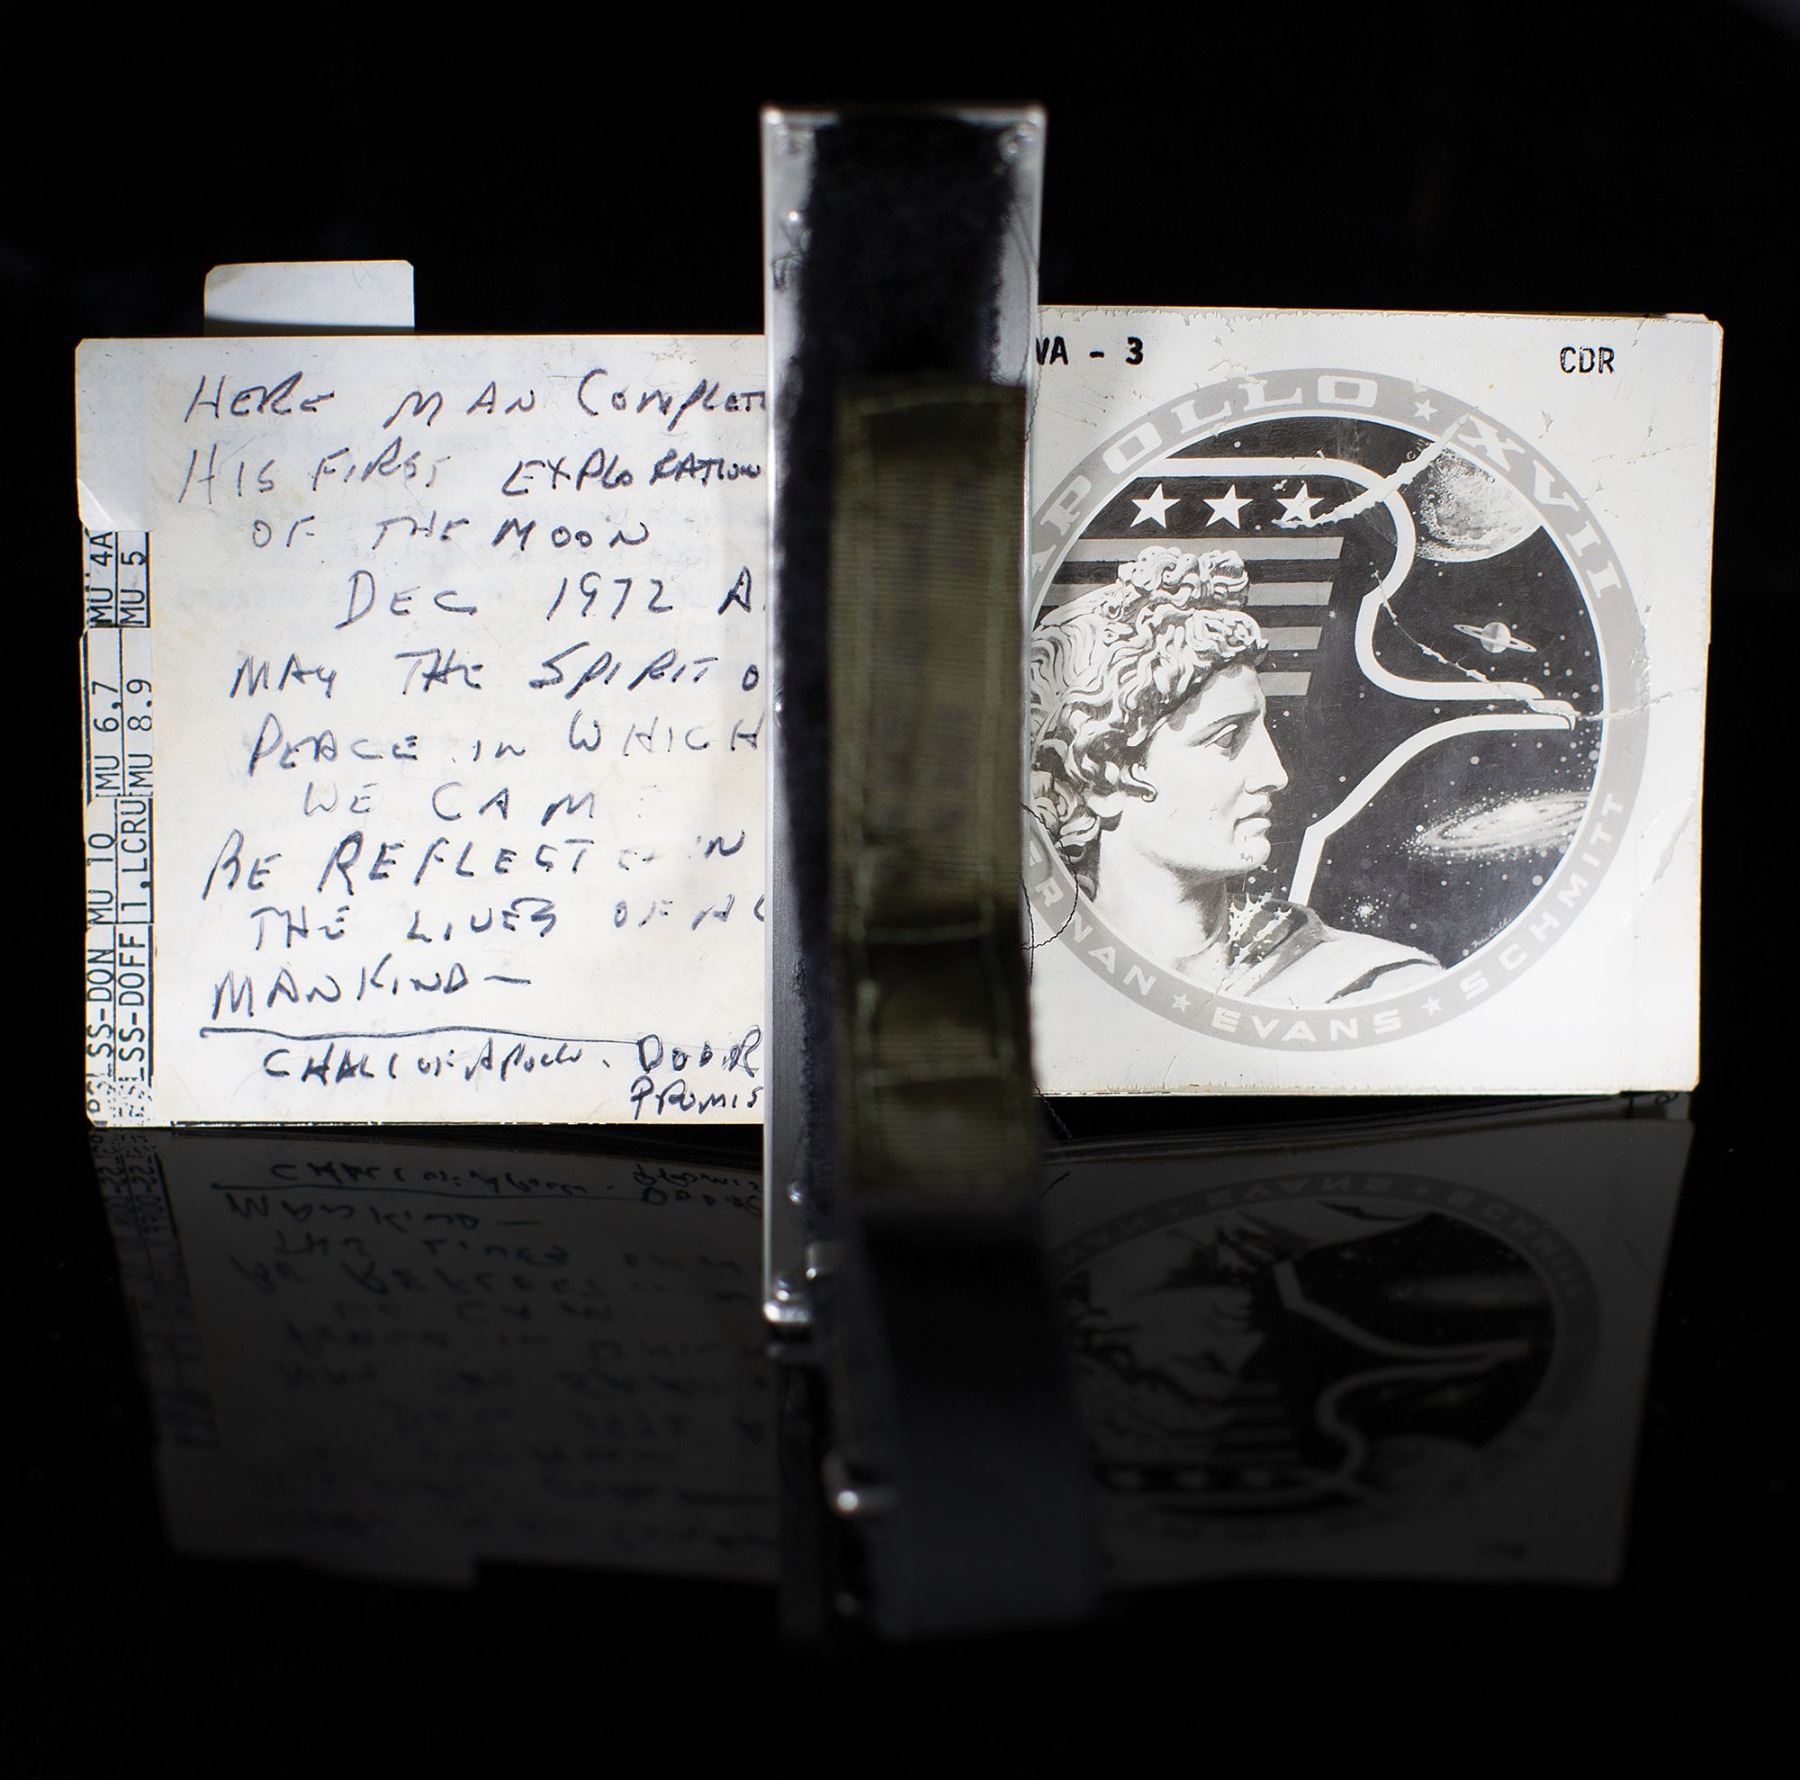 HERE MAN COMPLET
HIS FIRST EXPLORATION
OF THE MOON
DEC 1972 A.
MAY THE SPIRIT O
PEACE IN WHICH
WE CAM
BE REFLECT IN
THE LIVES OF
MANKIND—
CHALL OF APOLLO.
PROMIS
MU 4A
MU 5
MU 6,7
MU 8,9
MU 10
1.LCRU
SLSS-DON
SLSS-DOFF
VA - 3
CDR
APOLLO ★ XVII
ERNAN ★ EVANS ★ SCHMITT